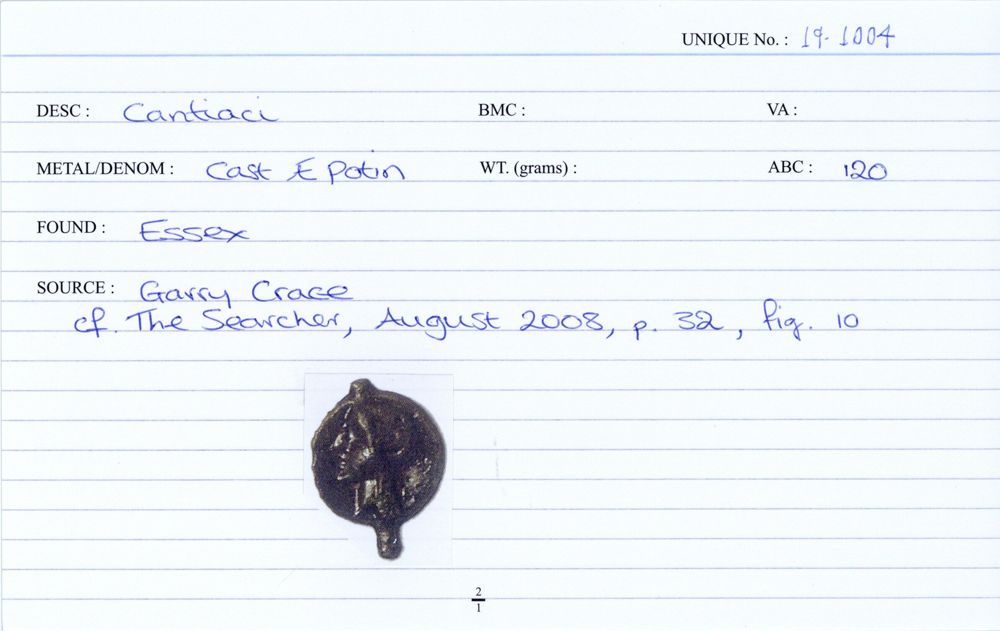 UNIQUE No. : 19-1004
DESC : Cantiaci BMC : VA :
METAL/DENOM : Cast Æ Potin WT. (grams) : ABC : 120
FOUND : Essex
SOURCE : Garry Crace
cf. The Searcher, August 2008, p. 32, fig. 10
2
1